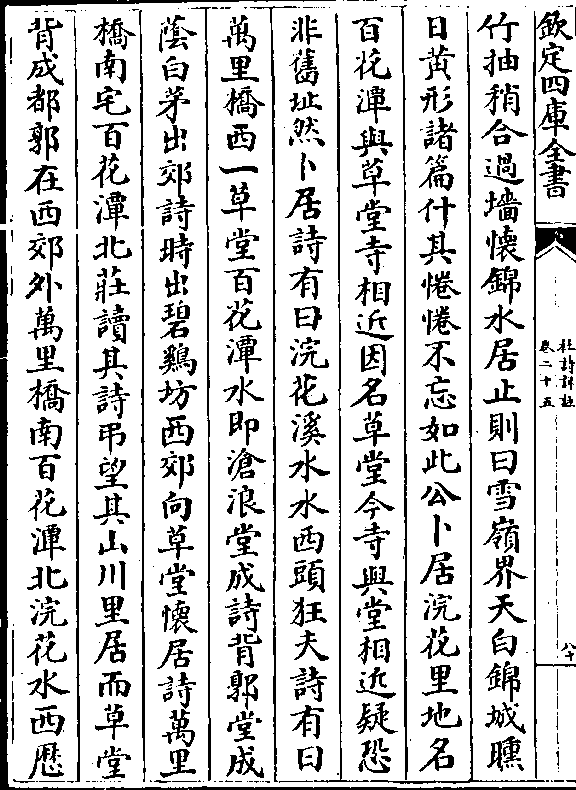 欽定四庫全書
杜詩詳註
卷二十五
八十
竹抽稍合過墻懷錦水居止則曰雪嶺界天白錦城曛
日黃形諸篇什其惓惓不忘如此公卜居浣花里地名
百花潭與草堂寺相近因名草堂今寺與堂相近疑恐
非舊址然卜居詩有曰浣花溪水水西頭狂夫詩有曰
萬里橋西一草堂百花潭水即滄浪堂成詩背郭堂成
蔭白茅出郊詩時出碧鷄坊西郊向草堂懷居詩萬里
橋南宅百花潭北莊讀其詩弔望其山川里居而草堂
背成都郭在西郊外萬里橋南百花潭北浣花水西歴